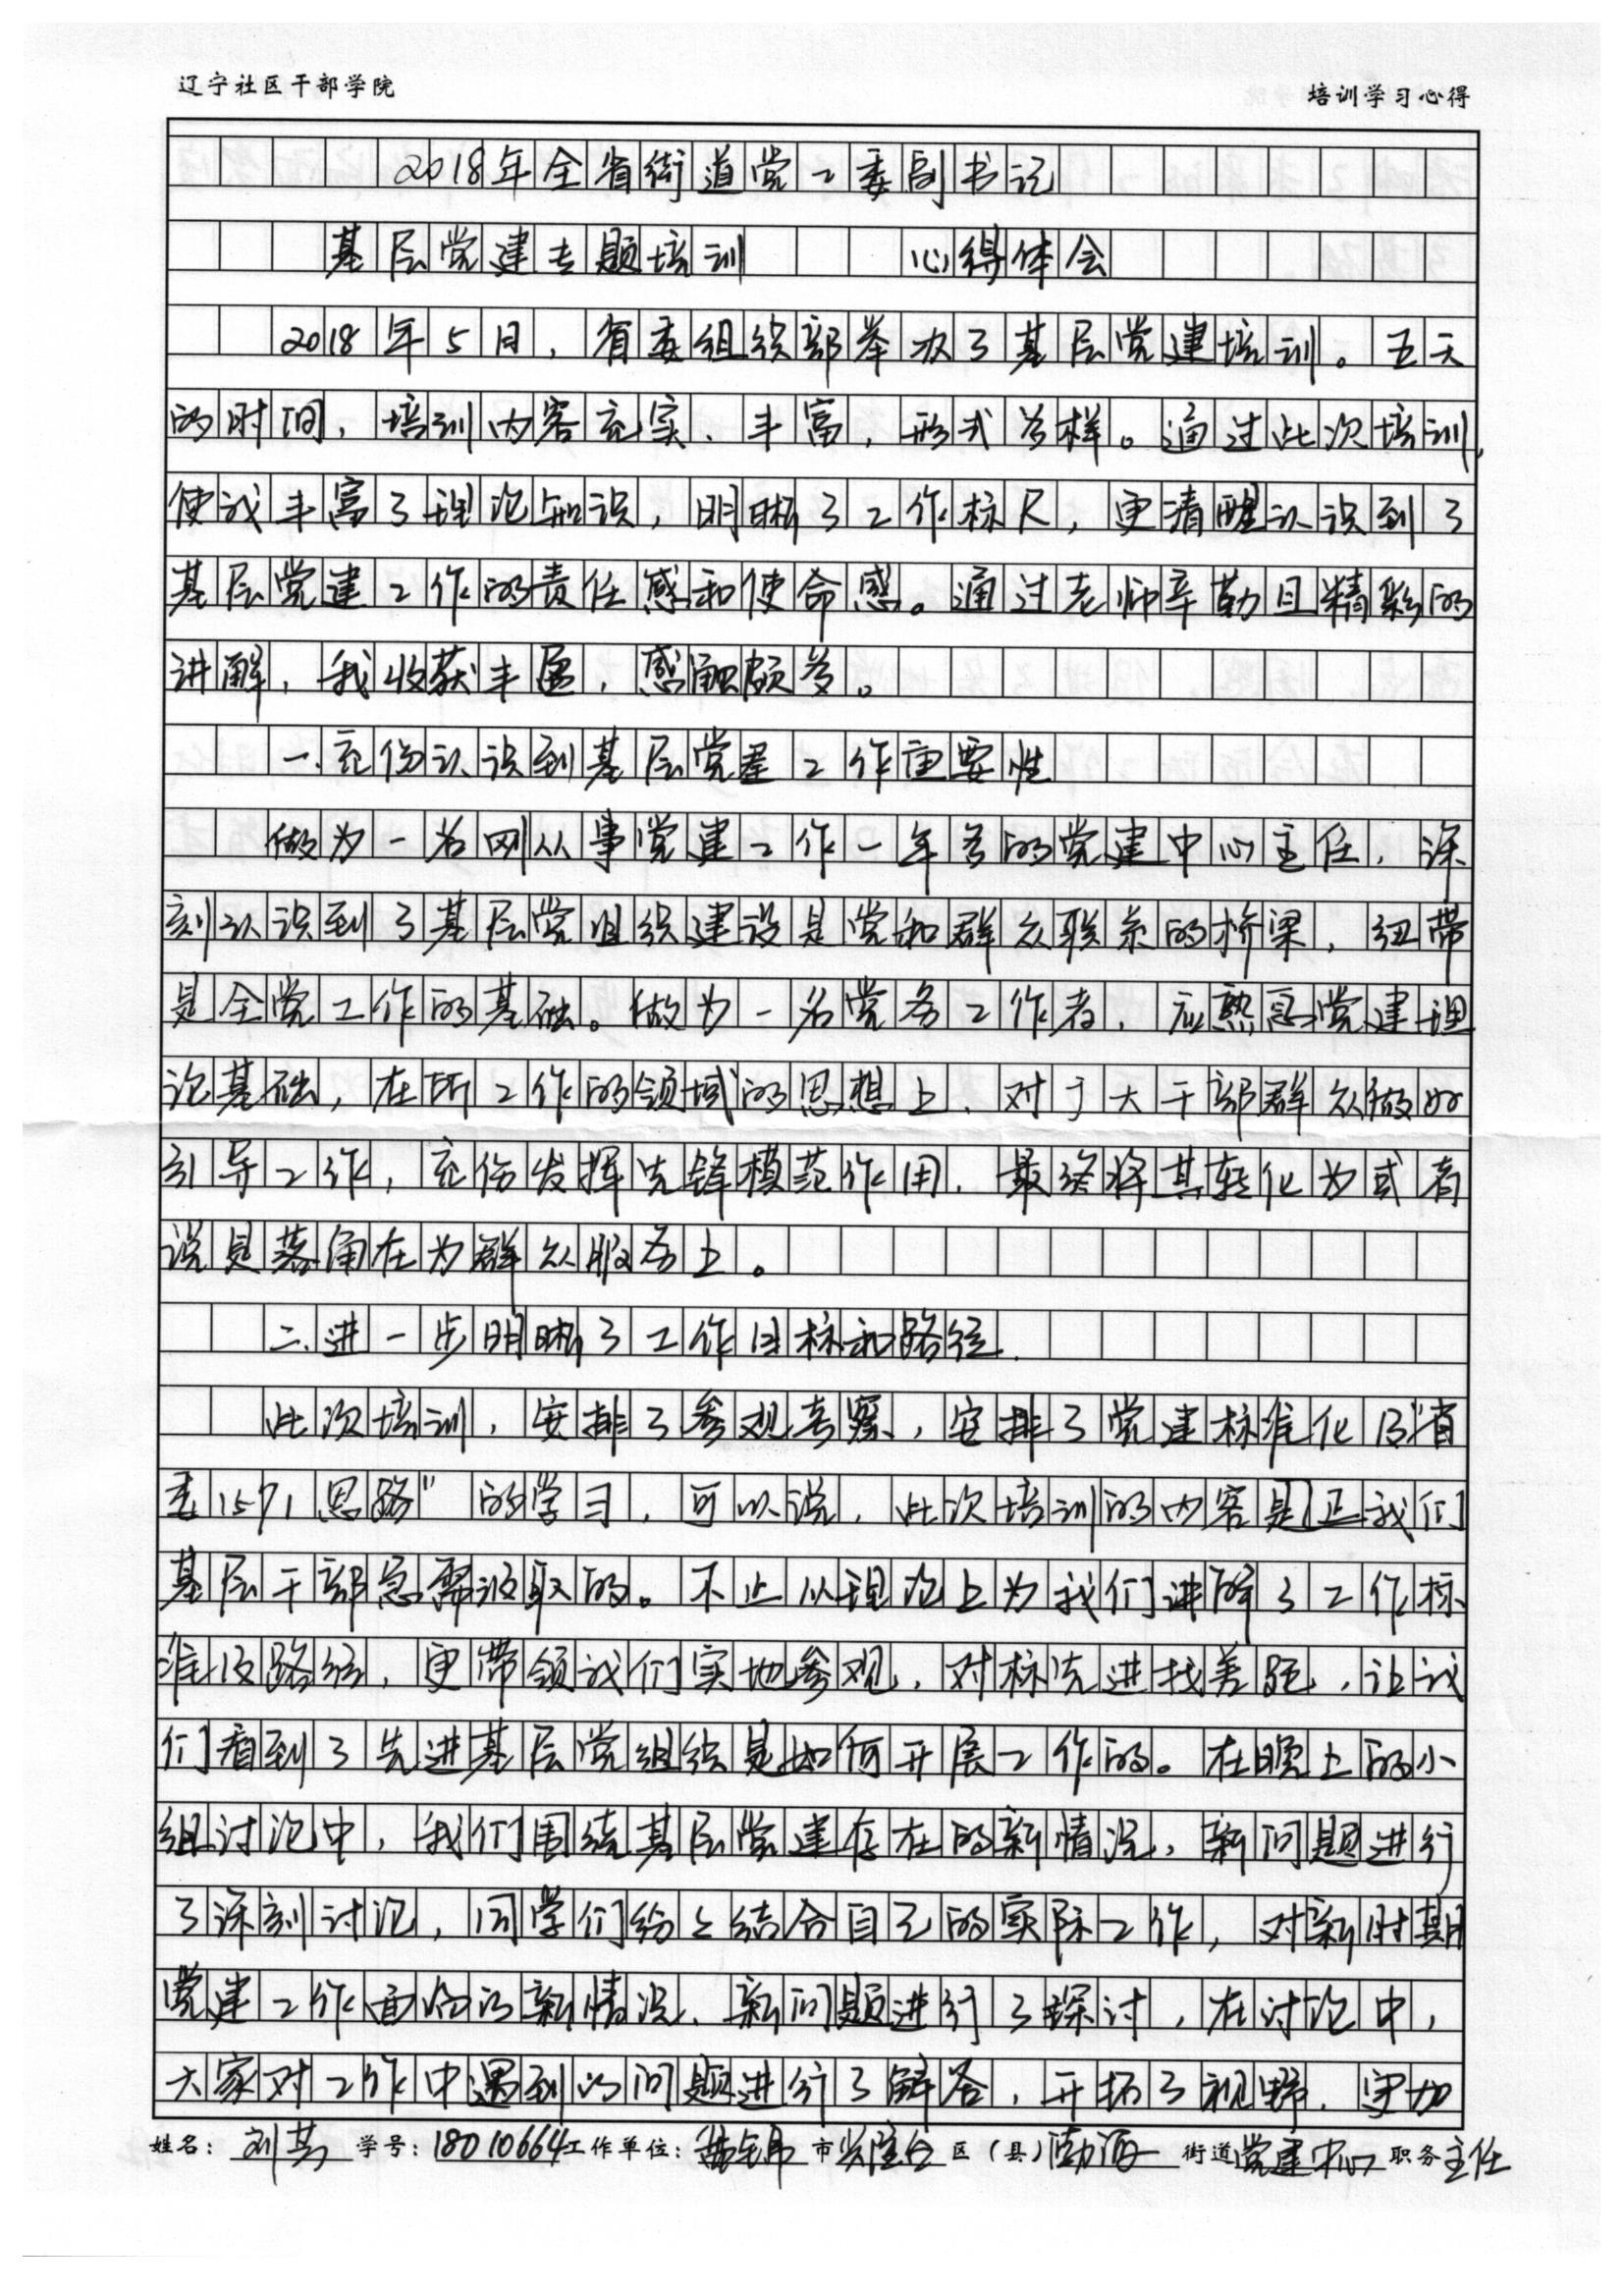 辽宁社区干部学院
培训学习心得
2018年全省街道党工委副书记
基层党建专题培训 心得体会
2018年5日，省委组织部举办了基层党建培训。五天
的时间，培训内容充实、丰富，形式多样。通过此次培训，
使我丰富了理论知识，明晰了工作标尺，更清醒认识到了
基层党建工作的责任感和使命感。通过老师辛勤且精彩的
讲解，我收获丰盈，感触颇多。
一、充份认识到基层党建工作重要性
做为一名刚从事党建工作一年多的党建中心主任，深
刻认识到了基层党组织建设是党和群众联系的桥梁，纽带
是全党工作的基础。做为一名党务工作者，应熟悉党建理
论基础，在所工作的领域的思想上，对于大干部群众做好
引导工作，充份发挥先锋模范作用，最终将其转化为或者
说是落角在为群众服务上。
二、进一步明晰了工作目标和路径.
此次培训，安排了参观考察，安排了党建标准化及“省
委1571思路”的学习，可以说，此次培训的内容是正我们
基层干部急需汲取的。不止从理论上为我们讲解了工作标
准及路径，更带领我们实地参观，对标先进找差距，让我
们看到了先进基层党组织是如何开展工作的。在晚上的小
组讨论中，我们围绕基层党建存在的新情况，新问题进行
了深刻讨论，同学们纷纷结合自己的实际工作，对新时期
党建工作面临的新情况、新问题进行了探讨，在讨论中，
大家对工作中遇到的问题进行了解答，开拓了视野，更加
姓名： 刘 学号：18010664 工作单位：盘锦市 市 兴隆台 区（县）渤海 街道 党建中心 职务 主任